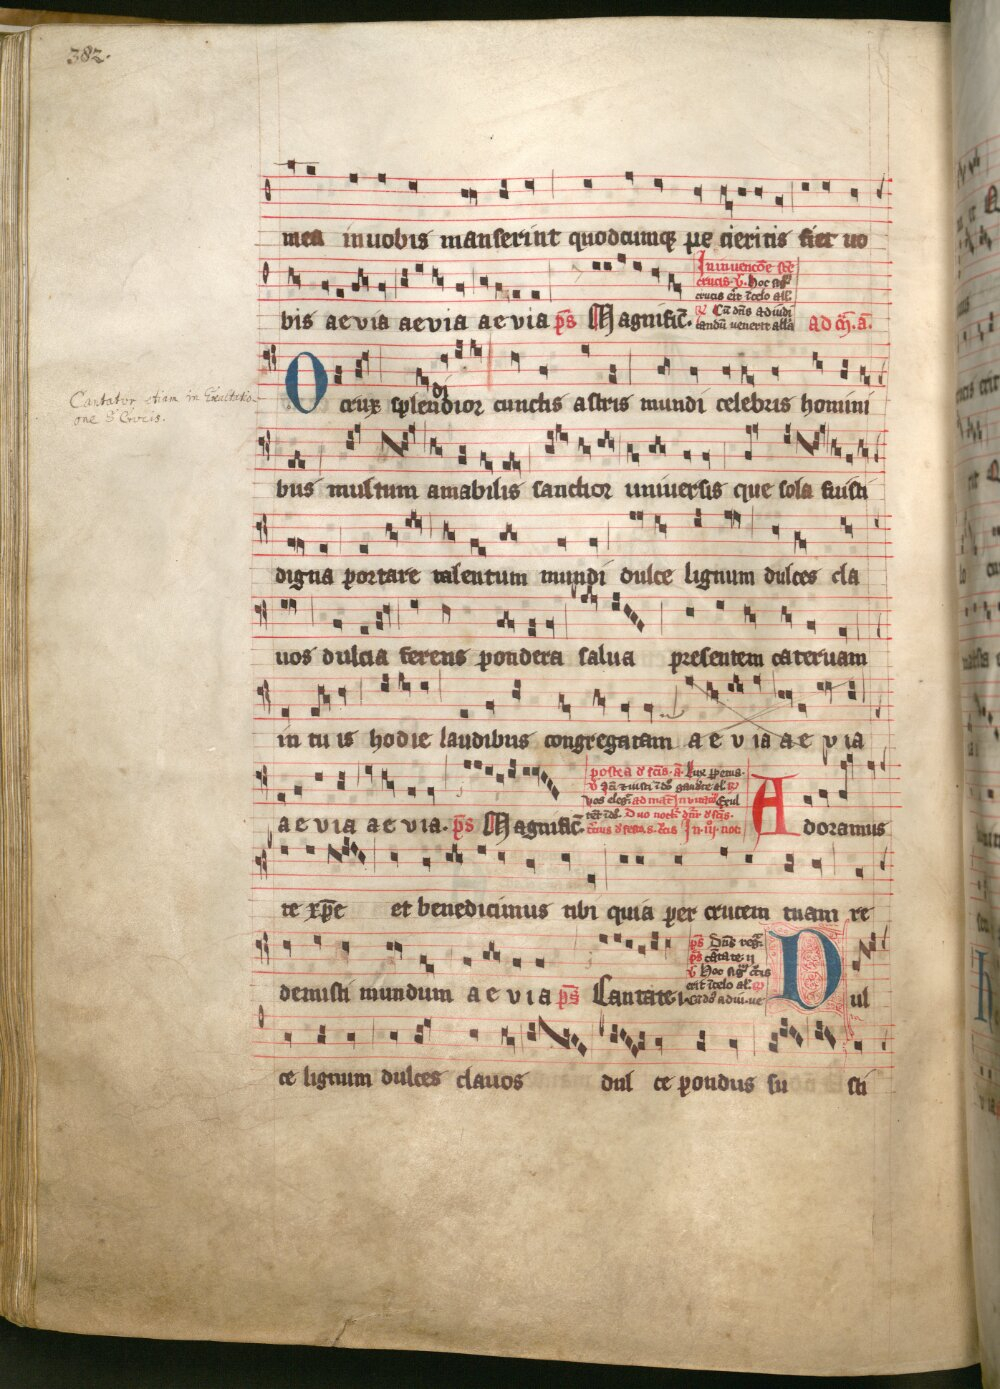 382.
mea in uobis manserint quodcumqꝫ pecieritis fiet uo
In inuencōe scē
crucis. v̄. Hoc sig̅
crucis erit ī celo all̅
Cū dn̄s ad iudi
bis aevia aevia aevia p̅s Magnific̅. candū venerit all̅a ad m̄. ā.
Cantatur etiam in Exaltatio-
one S. Crucis.
O crux splendidior cunctis astris mundi celebris homini
bus multum amabilis sanctior uniuersis que sola fuisti
digna portare talentum mundi dulce lignum dulces cla
uos dulcia ferens pondera salua presentem cateruam
in tu is hodie laudibus congregatam a e v ia a e v ia
postea d' sc̄is. ā. Lux ppetua.
aevia aevia. p̅s Magnific̅. Adoramus
te xp̅e et benedicimus tibi quia per crucem tuam re
p̅s Dn̄s reg̅.
p̅s cātate. ij
v̄ Hoc sig̅ c̄cis
erit ī celo al̅.
demisti mundum a e v i a p̅s Cantate. Dul
ce lignum dulces clauos dul ce pondus su sti